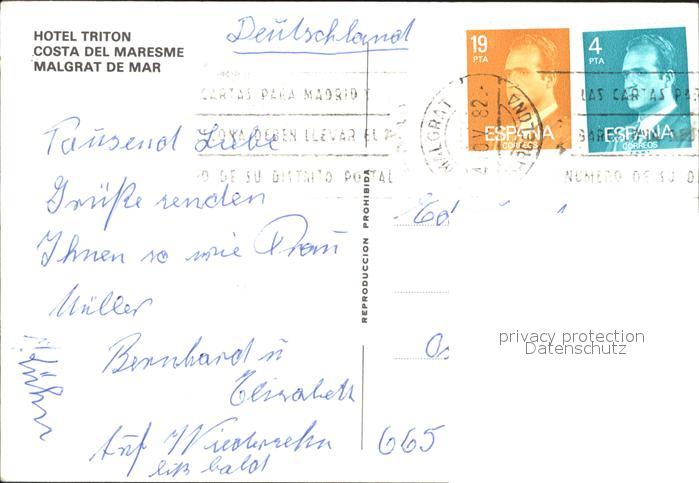 HOTEL TRITON
COSTA DEL MARESME
MALGRAT DE MAR
Deutschland
19
PTA
ESPAÑA
CORREOS
4
PTA
ESPAÑA
CORREOS
CARTAS PARA MADRID Y
DEBEN LLEVAR EL
O DE SU DISTRITO POSTAL
MALGRAT
NOV 82
LAS CARTAS PAR
NUMERO DE SU DI
Tausend Liebe
Grüße senden
Ihnen so wie Frau
Müller
Bernhard u
Elisabeth
Auf Wiedersehn
biß bald
REPRODUCCION PROHIBIDA
665
privacy protection
Datenschutz